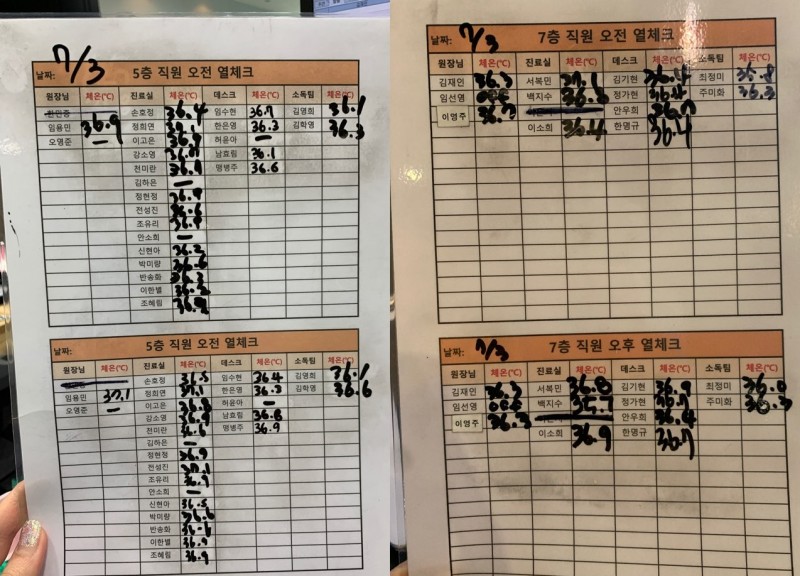 날짜: 7/3 5층 직원 오전 열체크
원장님 체온(℃) 진료실 체온(℃) 데스크 체온(℃) 소독팀 체온(℃)
손호정 36.4 임수현 36.7 김영희 36.1
임용민 36.9 정희연 37.1 한은영 36.3 김학영 36.3
오영준 - 이고은 허윤아 -
강소영 남효림 36.1
전미란 명병주 36.6
김하은 -
정현정
전성진
조유리
안소희 -
신현아 36.2
박미량 36.6
반송화
이한별
조혜림
날짜: 5층 직원 오전 열체크
원장님 체온(℃) 진료실 체온(℃) 데스크 체온(℃) 소독팀 체온(℃)
손호정 36.5 임수현 36.4 김영희 36.1
임용민 37.1 정희연 37.1 한은영 36.3 김학영 36.6
오영준 - 이고은 허윤아 -
강소영 남효림 36.8
전미란 명병주 36.9
김하은 -
정현정 36.9
전성진 37.1
조유리 36.9
안소희 -
신현아 36.5
박미량 36.6
반송화
이한별
조혜림 36.9
날짜: 7/3 7층 직원 오전 열체크
원장님 체온(℃) 진료실 체온(℃) 데스크 체온(℃) 소독팀 체온(℃)
김재인 36.3 서복민 37.1 김기현 36.4 최정미 36.8
임선영 백지수 36.6 정가현 36.4 주미화 36.3
이영주 안우희
이소희 36.4 한명규 36.4
날짜: 7/3 7층 직원 오후 열체크
원장님 체온(℃) 진료실 체온(℃) 데스크 체온(℃) 소독팀 체온(℃)
김재인 36.3 서복민 36.8 김기현 36.9 최정미
임선영 백지수 35.7 정가현 36.7 주미화 36.3
이영주 36.3 안우희 36.4
이소희 36.9 한명규 36.7